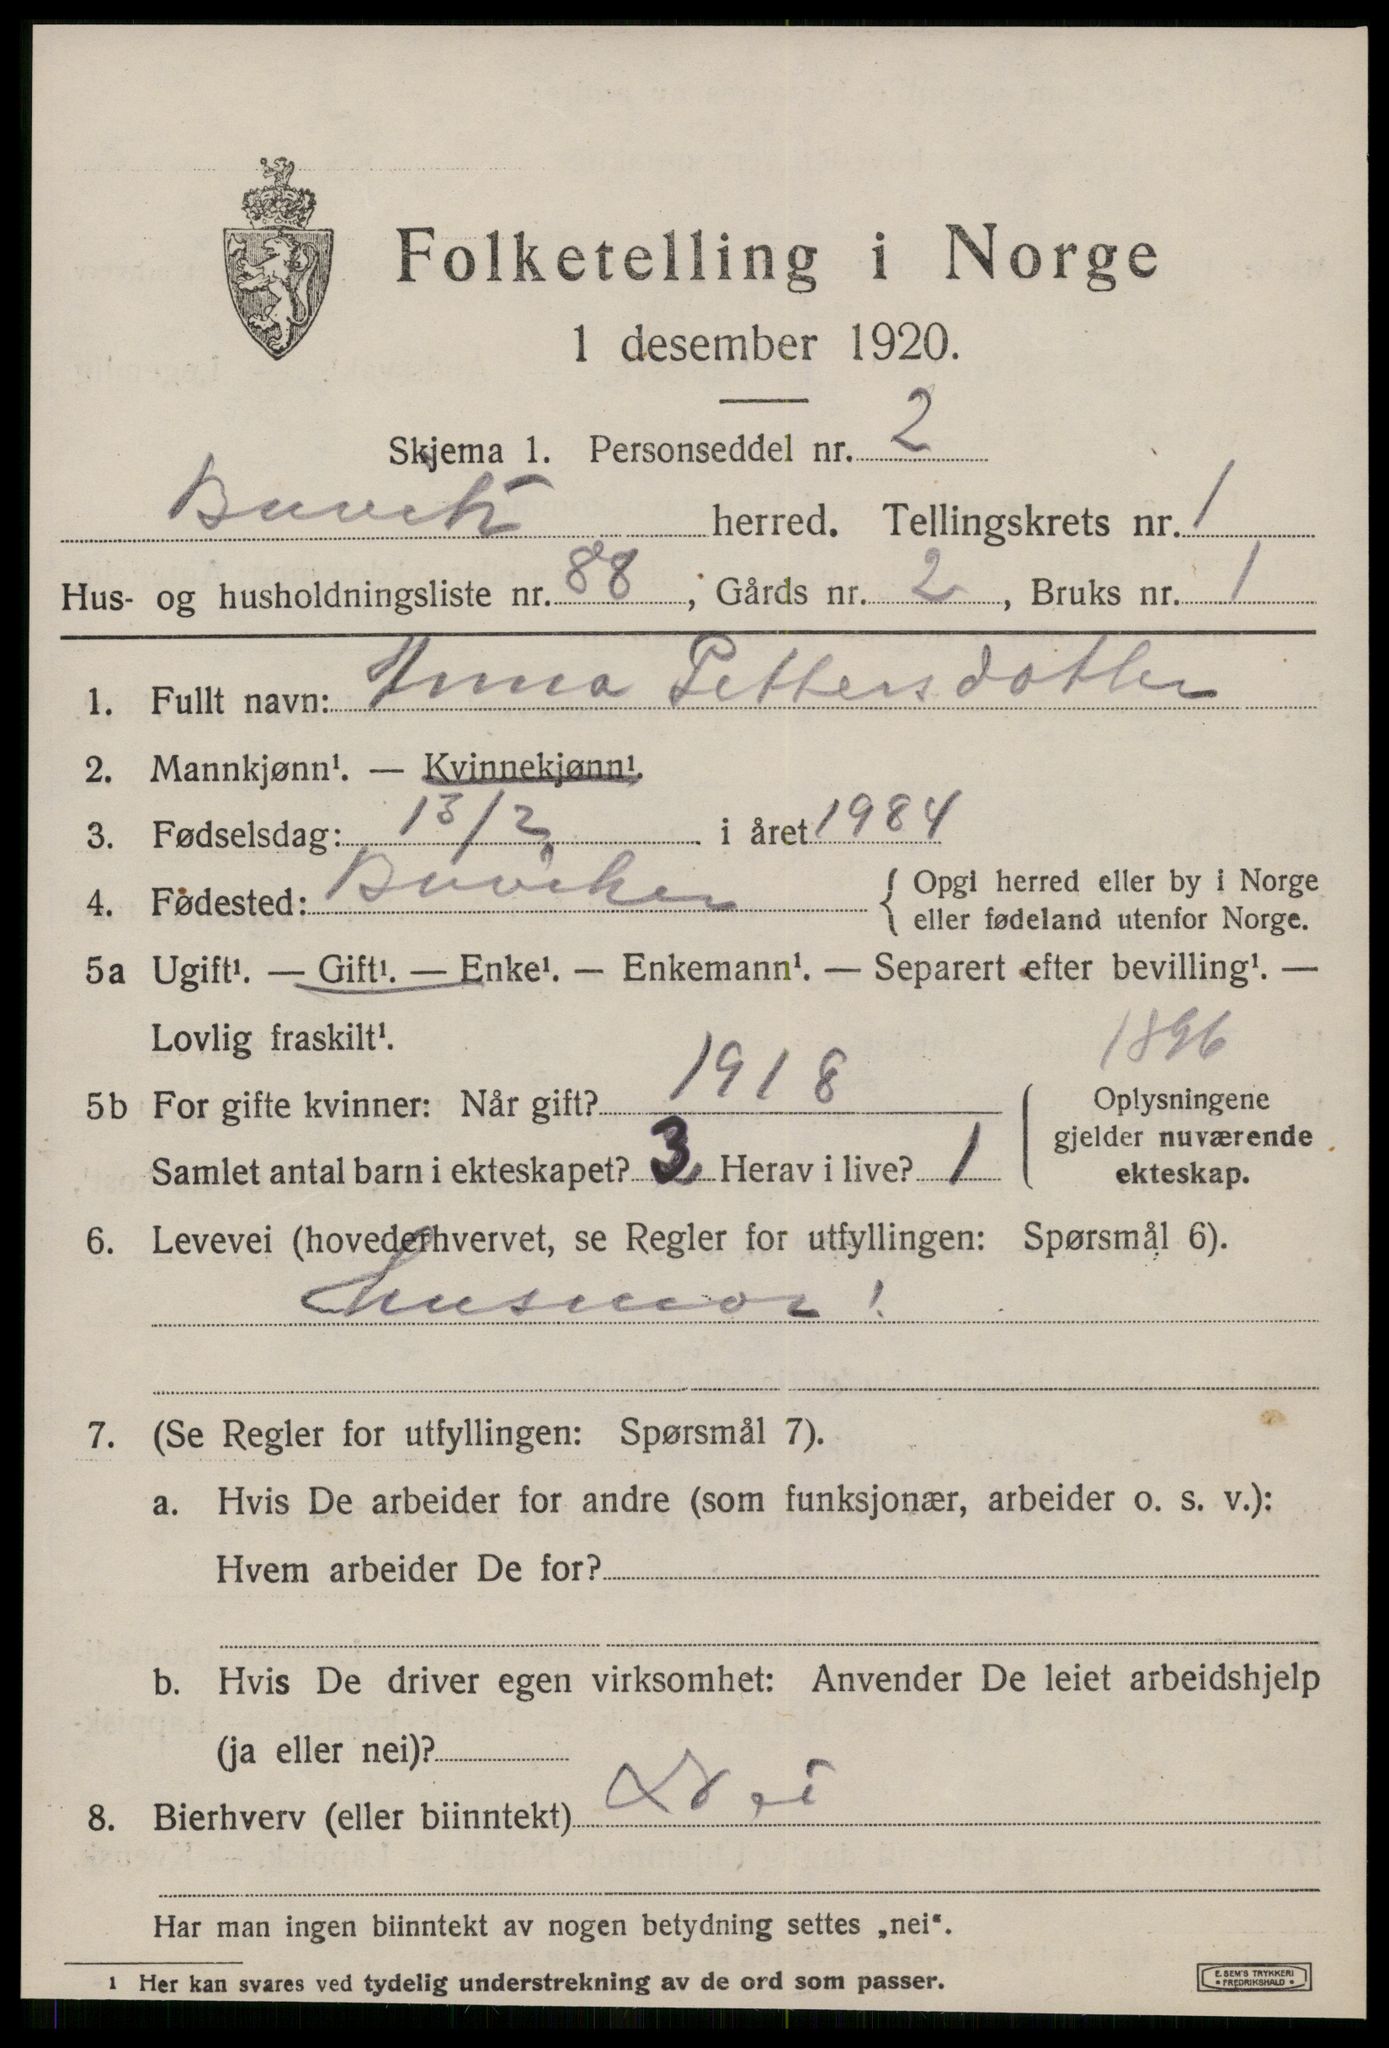 Folketelling i Norge
1 desember 1920.
Skjema 1. Personseddel nr. 2
Buvik herred. Tellingskrets nr. 1
Hus- og husholdningsliste nr. 88, Gårds nr. 2, Bruks nr. 1
1. Fullt navn: Anna Pettersdatter
2. Mannkjønn¹. — Kvinnekjønn¹.
3. Fødselsdag: 13/2 i året 1984
4. Fødested: Buviken { Opgi herred eller by i Norge
eller fødeland utenfor Norge.
5a Ugift¹. — Gift¹. — Enke¹. — Enkemann¹. — Separert efter bevilling¹. —
Lovlig fraskilt¹.
1896
5b For gifte kvinner: Når gift? 1918 Oplysningene
gjelder nuværende
Samlet antal barn i ekteskapet? 3 Herav i live? 1 ekteskap.
6. Levevei (hovederhvervet, se Regler for utfyllingen: Spørsmål 6).
Husmor!
7. (Se Regler for utfyllingen: Spørsmål 7).
a. Hvis De arbeider for andre (som funksjonær, arbeider o. s. v.):
Hvem arbeider De for?
b. Hvis De driver egen virksomhet: Anvender De leiet arbeidshjelp
(ja eller nei)?
8. Bierhverv (eller biinntekt) Nei
Har man ingen biinntekt av nogen betydning settes „nei“.
1 Her kan svares ved tydelig understrekning av de ord som passer.
E. SEM'S TRYKKERI
• FREDRIKSHALD •